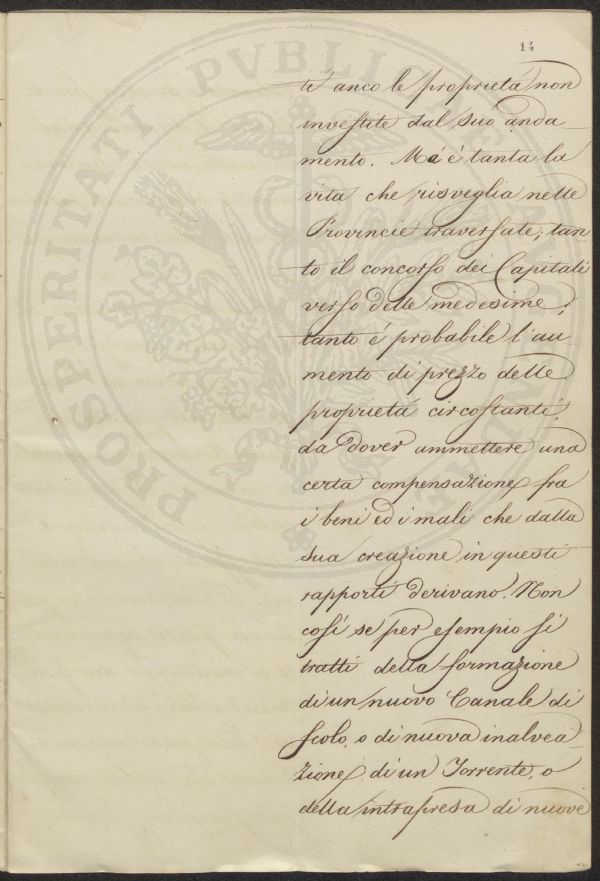 14
ti anco le proprietà non
investite dal suo anda
mento. Ma è tanta la
vita che risveglia nelle
Provincie traversate; tan
to il concorso dei Capitali
verso delle medesime;
tanto é probabile l'au
mento di prezzo delle
proprietà circostanti,
da dover ammettere una
certa compensazione fra
i beni ed i mali che dalla
sua creazione in questi
rapporti derivano. Non
così se per esempio si
tratti della formazione
di un nuovo Canale di
scolo, o di nuova inalvea
zione di un Torrente, o
della intrapresa di nuove
PROSPERITATI PVBLICAE